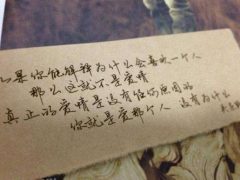 如果你能解释为什么会喜欢一个人
那么这就不是爱情
真正的爱情是没有任何原因的
你就是爱那个人 没有为什么